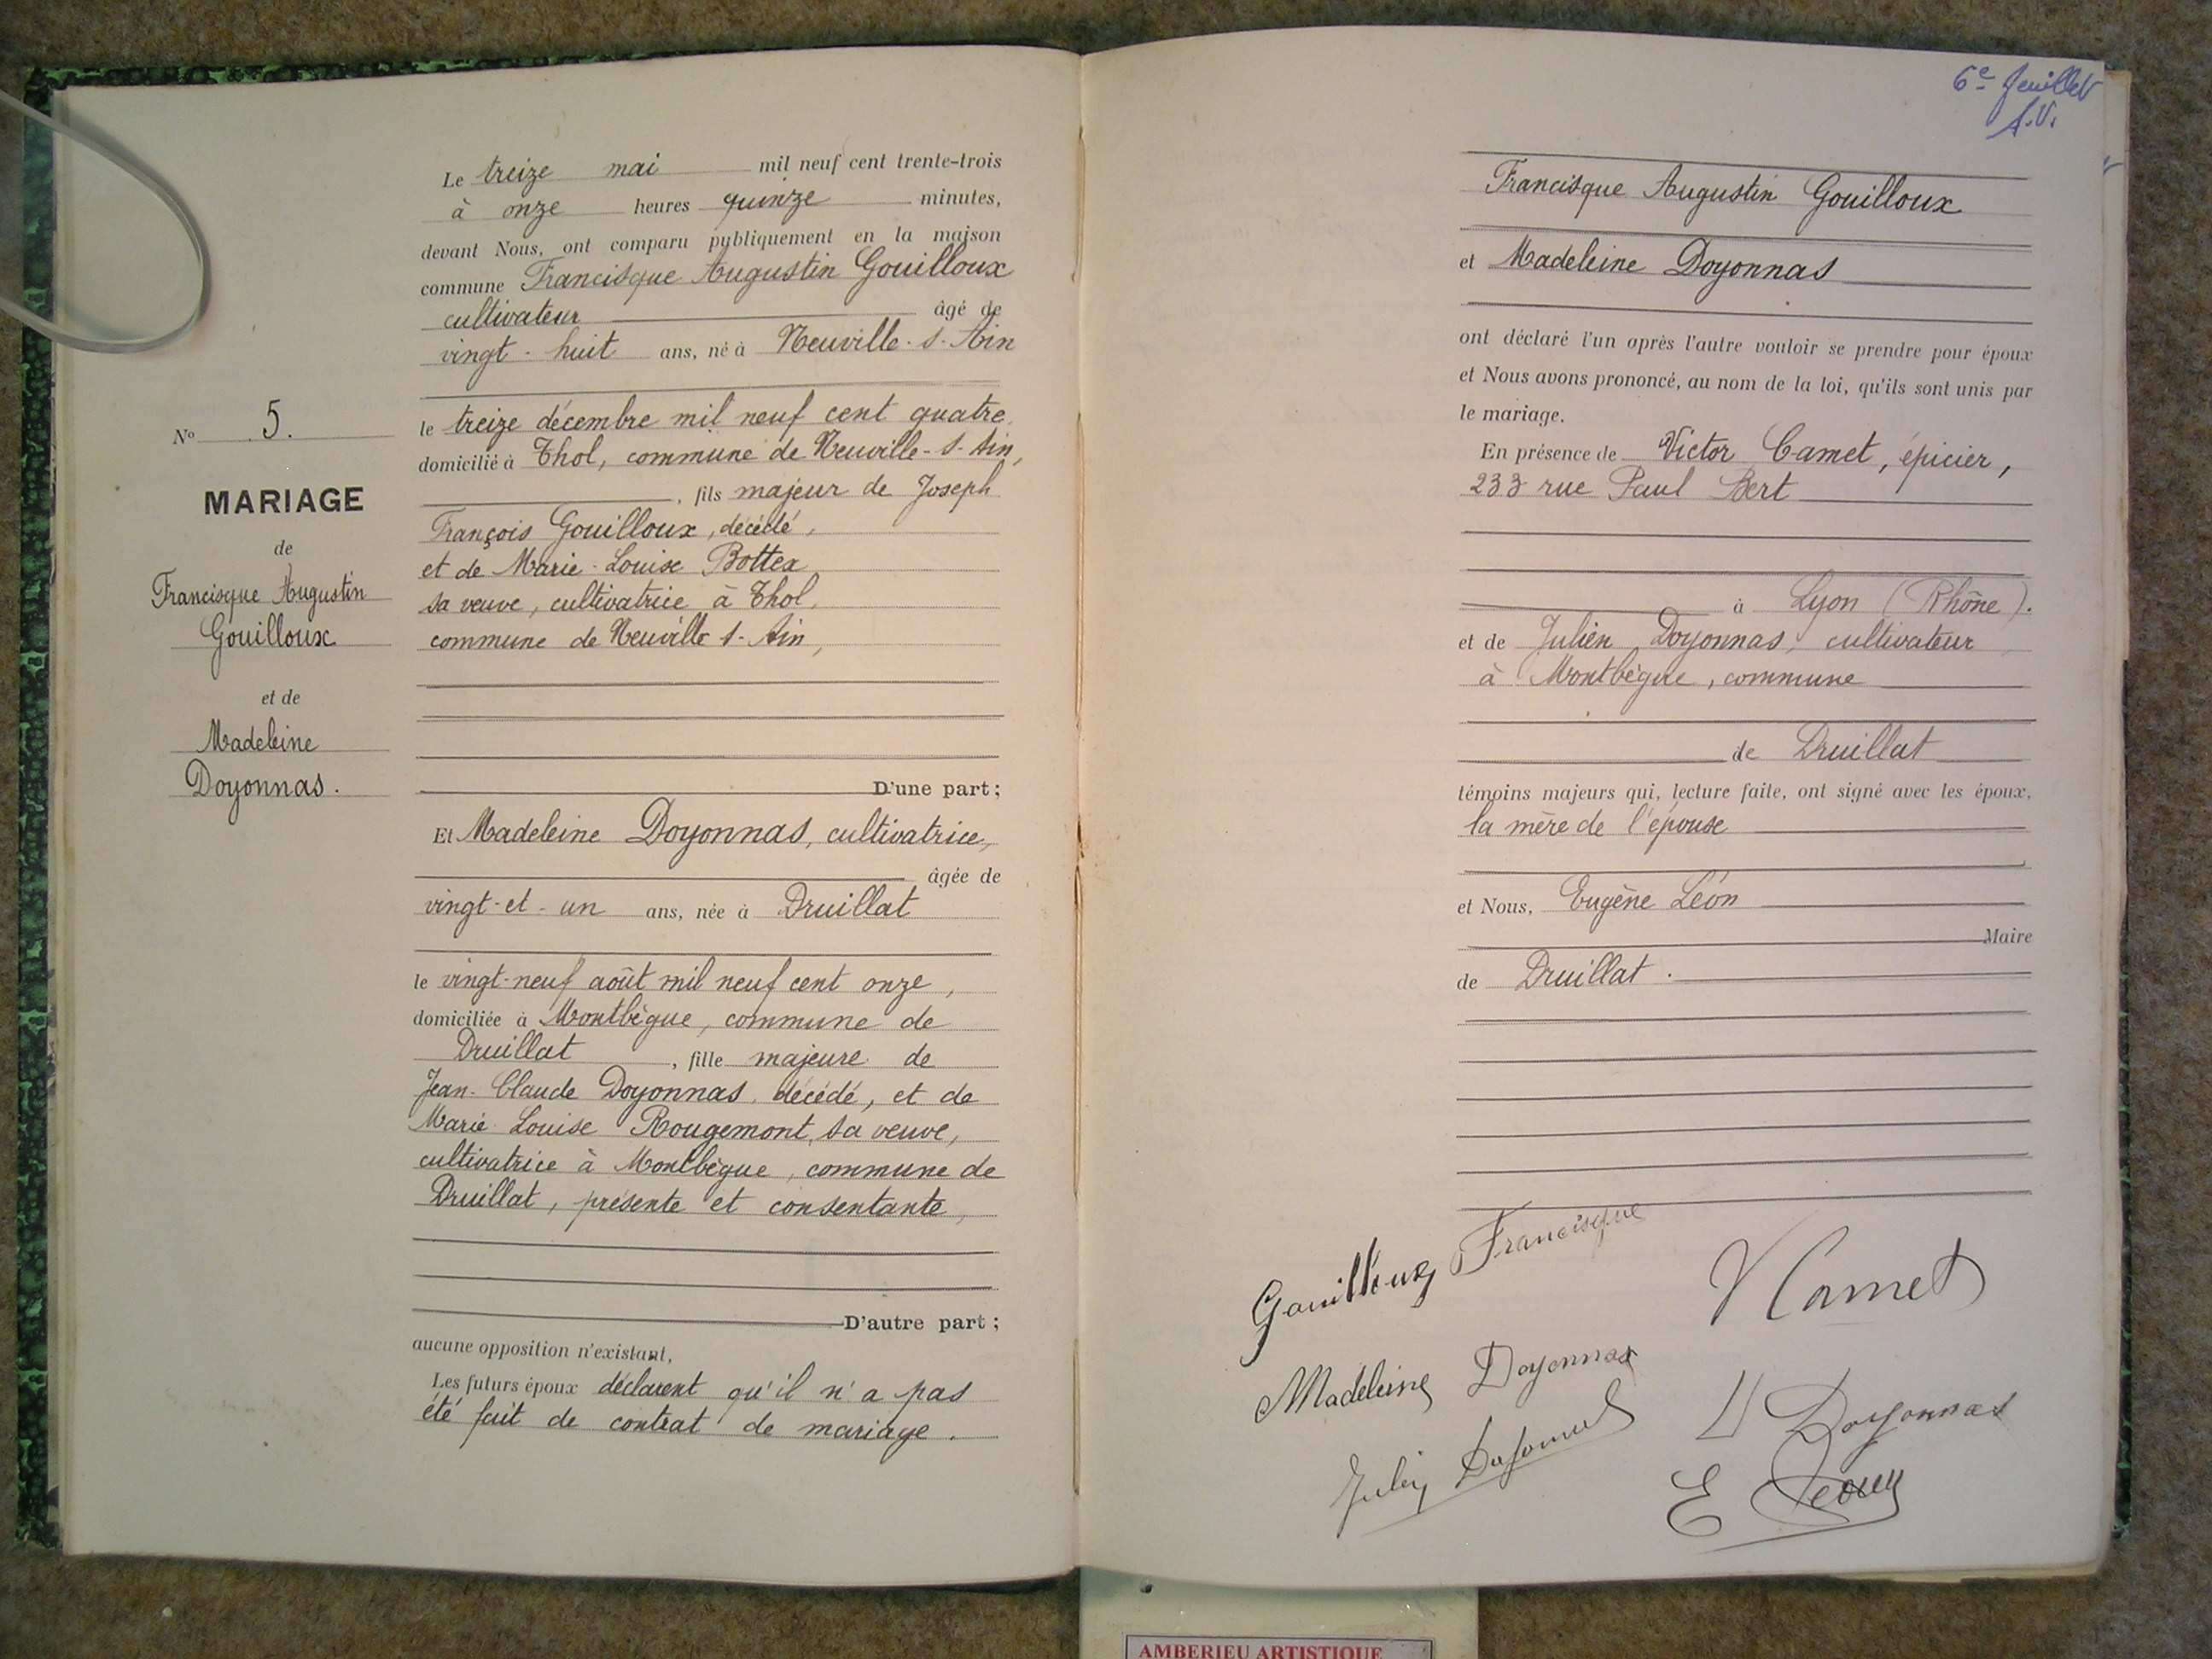 Le treize mai mil neuf cent trente-trois
à onze heures quinze minutes,
devant Nous, ont comparu publiquement en la maison
commune Francisque Augustin Gouilloux
cultivateur âgé de
vingt-huit ans, né à Neuville-s-Ain
le treize décembre mil neuf cent quatre
domicilié à Thol, commune de Neuville-s-Ain,
, fils majeur de Joseph
François Gouilloux, décédé,
et de Marie-Louise Bottex
sa veuve, cultivatrice à Thol,
commune de Neuville s-Ain,
D'une part ;
Et Madeleine Doyonnas, cultivatrice,
âgée de
vingt-et-un ans, née à Druillat
le vingt-neuf août mil neuf cent onze,
domiciliée à Montbègue, commune de
Druillat, fille majeure de
Jean-Claude Doyonnas, décédé, et de
Marie Louise Rougemont, sa veuve,
cultivatrice à Montbègue, commune de
Druillat, présente et consentante,
D'autre part ;
aucune opposition n'existant,
Les futurs époux déclarent qu'il n'a pas
été fait de contrat de mariage.
No 5.
MARIAGE
de
Francisque Augustin
Gouilloux
et de
Madeleine
Doyonnas.
6e feuillet
Francisque Augustin Gouilloux
et Madeleine Doyonnas
ont déclaré l'un après l'autre vouloir se prendre pour époux
et Nous avons prononcé, au nom de la loi, qu'ils sont unis par
le mariage.
En présence de Victor Camet, épicier,
233 rue Paul Bert
à Lyon (Rhône).
et de Julien Doyonnas, cultivateur
à Montbègue, commune
de Druillat
témoins majeurs qui, lecture faite, ont signé avec les époux,
la mère de l'épouse
et Nous, Eugène Léon
Maire
de Druillat.
Gouilloux Francisque
V Camet
Madeleine Doyonnas
Doyonnas
Julien Doyonnas
E Léon
AMBERIEU ARTISTIQUE